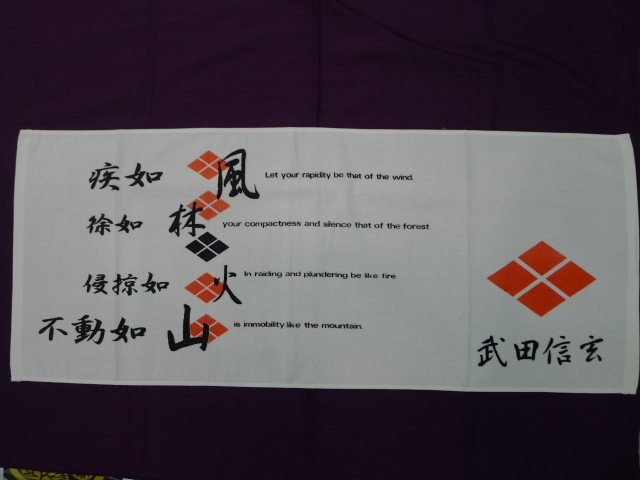 疾如風 Let your rapidity be that of the wind.
徐如林 your compactness and silence that of the forest
侵掠如火 In raiding and plundering be like fire
不動如山 is immobility like the mountain.
武田信玄